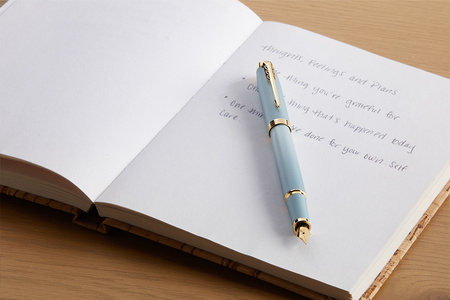 thoughts, Feelings and Plans
thing you're grateful for
thing that's happened today
• One done for your own self
care